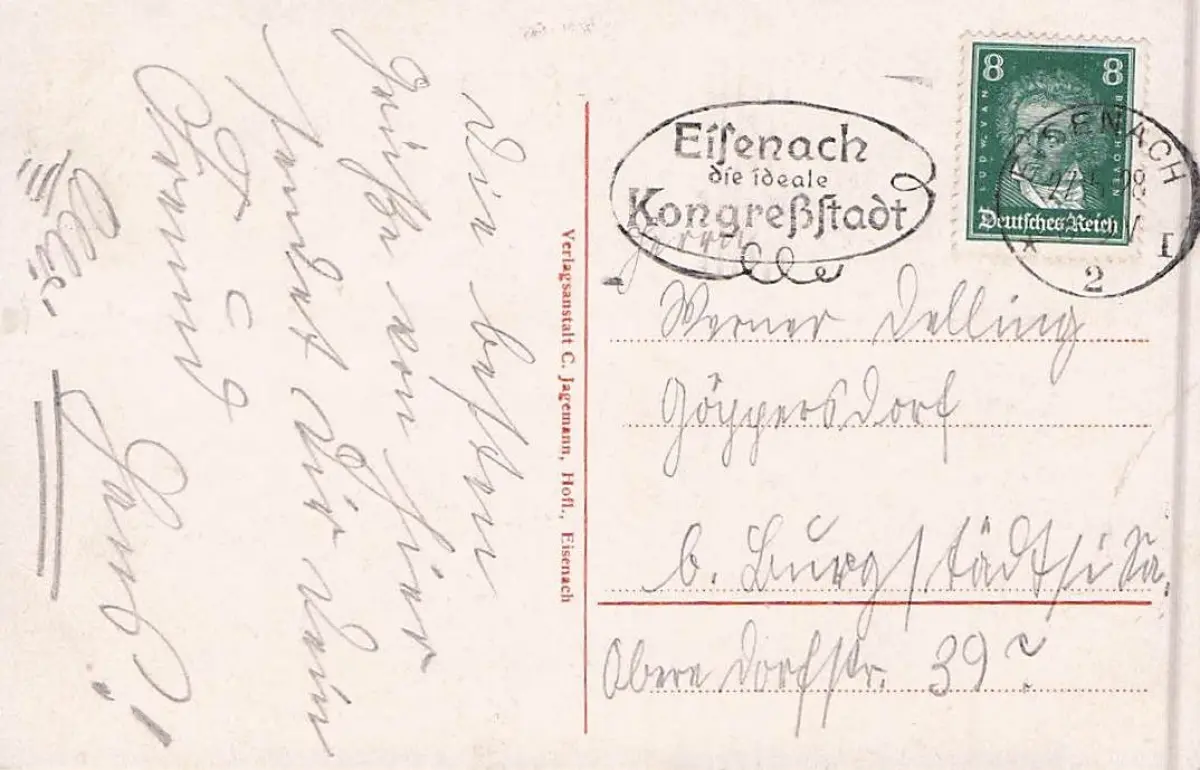 Die besten
Grüße von hier
sendet Dir Dein
Freund
Hans!
Verlagsanstalt C. Jagemann, Hofl., Eisenach
Eisenach
die ideale
Kongreßstadt
8 8
LUDW. VAN BEETHOVEN
Deutsches Reich
EISENACH
I
2
Herrn
Werner Delling
Göppersdorf
b. Burgstädt i. Sa.
Obere Dorfstr. 39